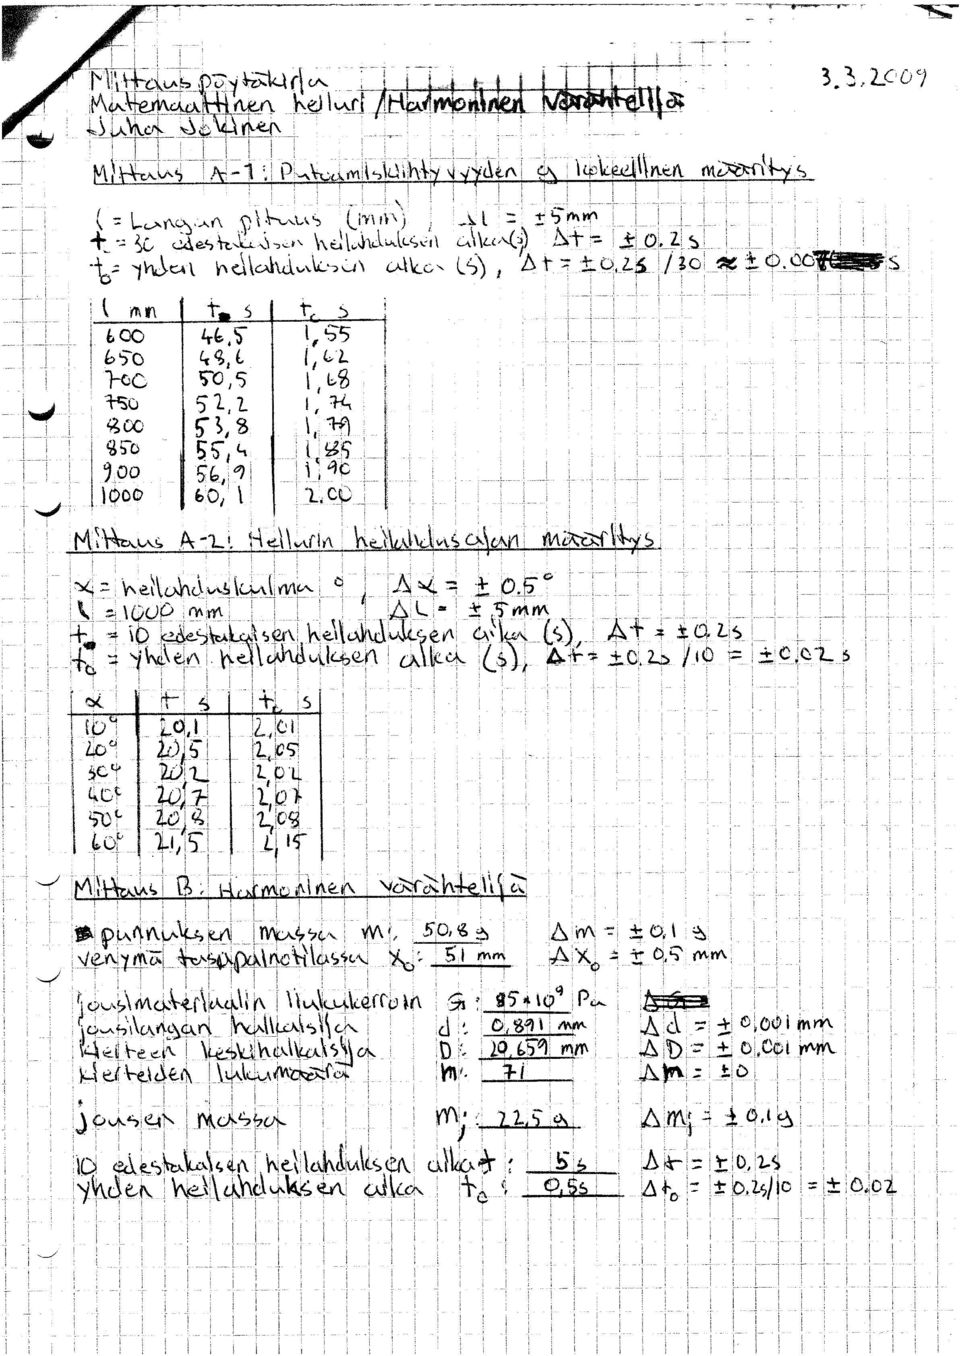 Mittauspöytäkirja
3.3.2009
Matemaattinen heiluri / Harmoninen värähtelijä
Juha Jokinen
Mittaus A-1: Putoamiskiihtyvyyden g kokeellinen määritys
l = Langan pituus (mm), Δl = ±5mm
t = 30 edestakaisen heilahduksen aika (s) Δt = ±0.2s
t₀ = yhden heilahduksen aika (s), Δt = ±0.2s /30 ≈ ±0.007 s
l mm | t s | t₀ s
600 | 46,5 | 1,55
650 | 48,6 | 1,62
700 | 50,5 | 1,68
750 | 52,2 | 1,74
800 | 53,8 | 1,79
850 | 55,4 | 1,85
900 | 56,9 | 1,90
1000 | 60,1 | 2,00
Mittaus A-2: Heilurin heilahdusajan määritys
α = heilahduskulma °, Δα = ± 0.5°
l = 1000 mm ΔL = ± 5mm
t = 10 edestakaisen heilahduksen aika (s), Δt = ±0.2s
t₀ = yhden heilahduksen aika (s), Δt = ±0.2s /10 = ±0.02 s
α | t s | t₀ s
10° | 20,1 | 2,01
20° | 20,5 | 2,05
30° | 20,2 | 2,02
40° | 20,7 | 2,07
50° | 20,8 | 2,08
60° | 21,5 | 2,15
Mittaus B: Harmoninen värähtelijä
punnuksen massa m: 50,8 g Δm = ±0,1 g
venymä tasapainotilassa x₀: 51 mm Δx₀ = ± 0,5 mm
jousimateriaalin liukukerroin G: 85*10⁹ Pa
jousilangan halkaisija d: 0,891 mm Δd = ± 0,001mm
kierteen keskihalkaisija D: 20,659 mm ΔD = ± 0,001 mm
kierteiden lukumäärä n: 71 Δn = ±0
jousen massa mⱼ: 22,5 g Δmⱼ = ± 0,1g
10 edestakaisen heilahduksen aika t: 5s Δt = ± 0,2s
yhden heilahduksen aika t₀: 0,5s Δt₀ = ± 0,2s/10 = ± 0.02